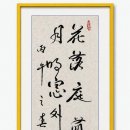 花落庭前
月明窗外
丙午之春